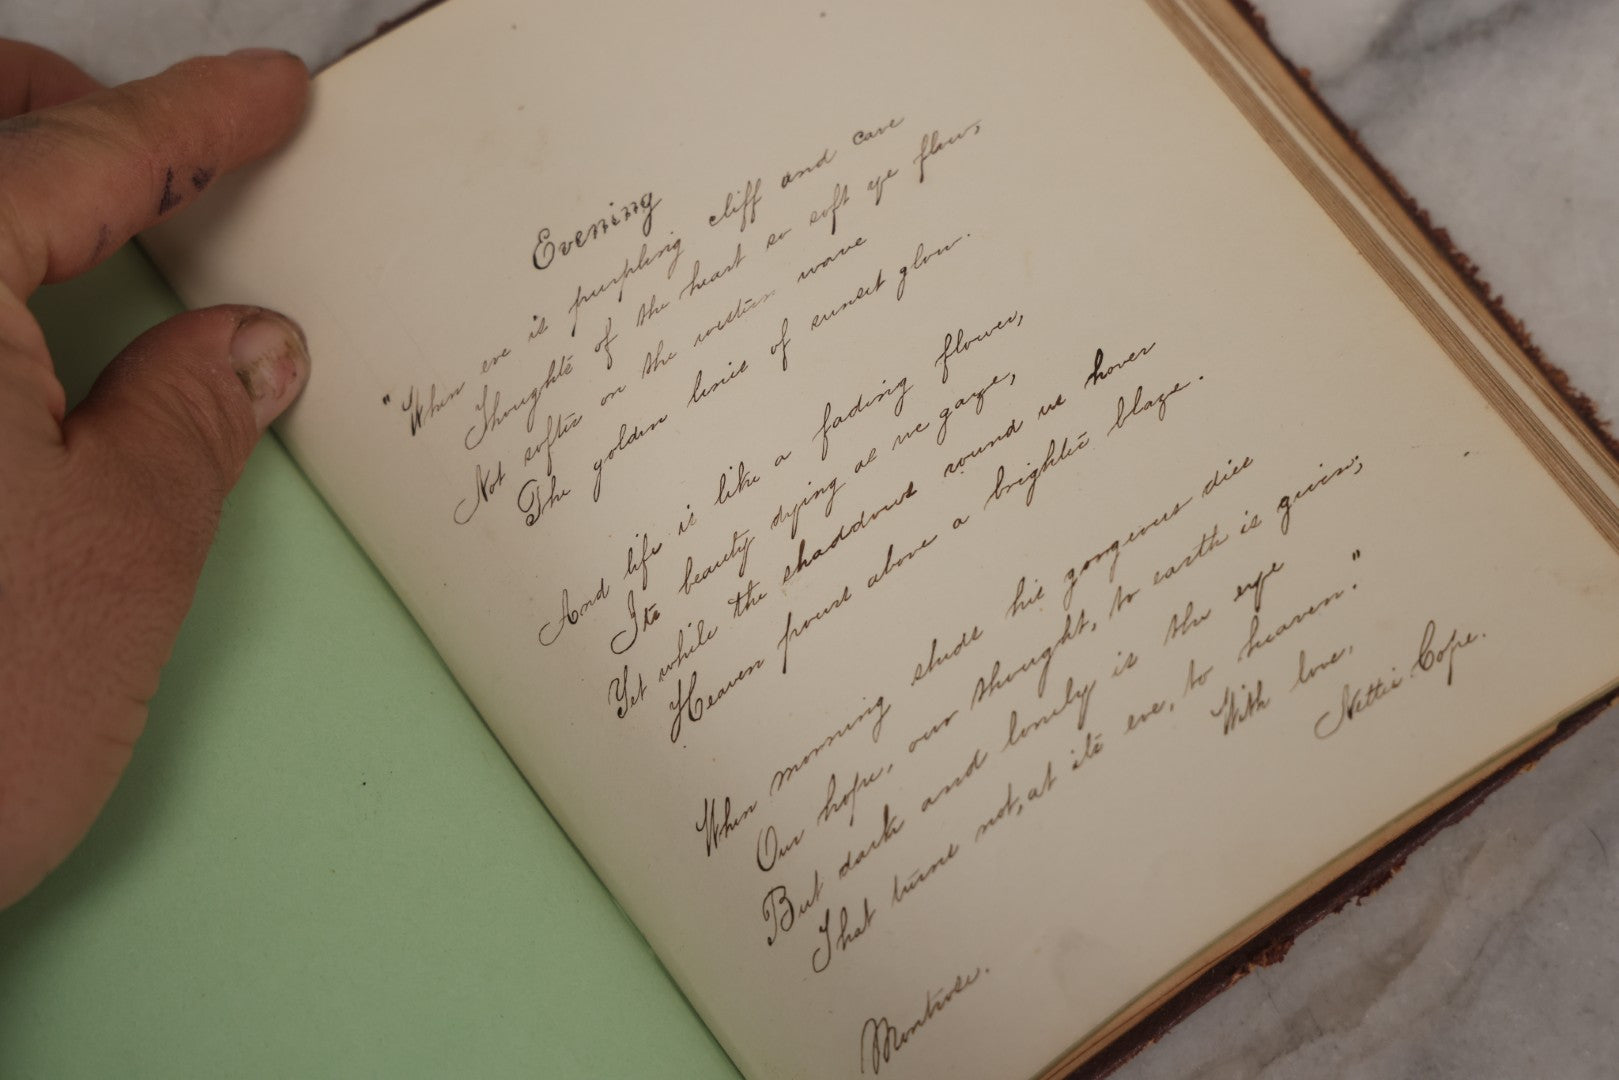 Evening
"When eve is purpling cliff and cave
Thoughts of the heart so soft ye flow,
Not softer on the western wave
The golden lines of sunset glow.
And life is like a fading flower,
Its beauty dying as we gaze,
Yet while the shaddows round us hover
Heaven pours above a brighter blaze.
When morning sheds his gorgeous dies
Our hope, our thought, to earth is given;
But dark and lonely is the eye
That turns not, at its eve, to heaven."
With love,
Nettie Cope.
Montrose.